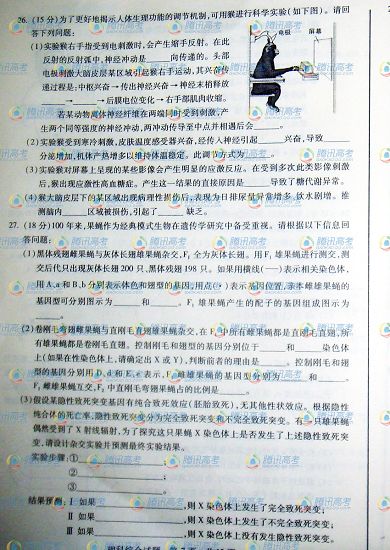 26. (15分)为了更好地揭示人体生理功能的调节机制,可用猴进行科学实验(如下图)。请回
答下列问题:
电极 屏幕
(1)实验猴右手指受到电刺激时,会产生缩手反射。在此
反射的反射弧中,神经冲动是____向传递的。头部
电极刺激大脑皮层某区域引起猴右手运动,其兴奋传
递过程是:中枢兴奋→传出神经兴奋→神经末梢释放
____→____→后膜电位变化→右手部肌肉收缩。
若某动物离体神经纤维在两端同时受到刺激,产
生两个同等强度的神经冲动,两冲动传导至中点并相遇后会____。
(2)实验猴受到寒冷刺激,皮肤温度感受器兴奋,经传入神经引起____兴奋,导致____
分泌增加,机体产热增多以维持体温稳定。此调节方式为____。
(3)实验猴对屏幕上呈现的某些影像会产生明显的应激反应。在受到多次此类影像刺激
后,猴出现应激性高血糖症。产生这一结果的直接原因是____导致了糖代谢异常。
(4)猴大脑皮层下的某区域出现病理性损伤后,表现为日排尿量异常增多、饮水剧增。推
测脑内____区域被损伤,引起了____缺乏。
27. (18分)100年来,果蝇作为经典模式生物在遗传学研究中备受重视。请根据以下信息回
答问题:
(1)黑体残翅雌果蝇与灰体长翅雄果蝇杂交,F₁全为灰体长翅。用F₁雄果蝇进行测交,测
交后代只出现灰体长翅200只、黑体残翅198只。如果用横线(—)表示相关染色体,
用A、a和B、b分别表示体色和翅型的基因,用点(·)表示基因位置,亲本雌雄果蝇的
基因型可分别图示为____和____。F₁雄果蝇产生的配子的基因组成图示为
____。
(2)卷刚毛弯翅雌果蝇与直刚毛直翅雄果蝇杂交,在F₁中所有雌果蝇都是直刚毛直翅,所
有雄果蝇都是卷刚毛直翅。控制刚毛和翅型的基因分别位于____和____染色体
上(如果在性染色体上,请确定出X或Y),判断前者的理由是____。控制刚毛和翅
型的基因分别用D、d和E、e表示,F₁雌雄果蝇的基因型分别为____和____。
F₁雌雄果蝇互交,F₂中直刚毛弯翅果蝇占的比例是____。
(3)假设某隐性致死突变基因有纯合致死效应(胚胎致死),无其他性状效应。根据隐性
纯合体的死亡率,隐性致死突变分为完全致死突变和不完全致死突变。有一只雄果蝇
偶然受到了X射线辐射,为了探究这只果蝇X染色体上是否发生了上述隐性致死突
变,请设计杂交实验并预测最终实验结果。
实验步骤:①____;
②____;
③____。
结果预测:Ⅰ 如果____,则X染色体上发生了完全致死突变;
Ⅱ 如果____,则X染色体上发生了不完全致死突变;
Ⅲ 如果____,则X染色体上没有发生隐性致死突变。